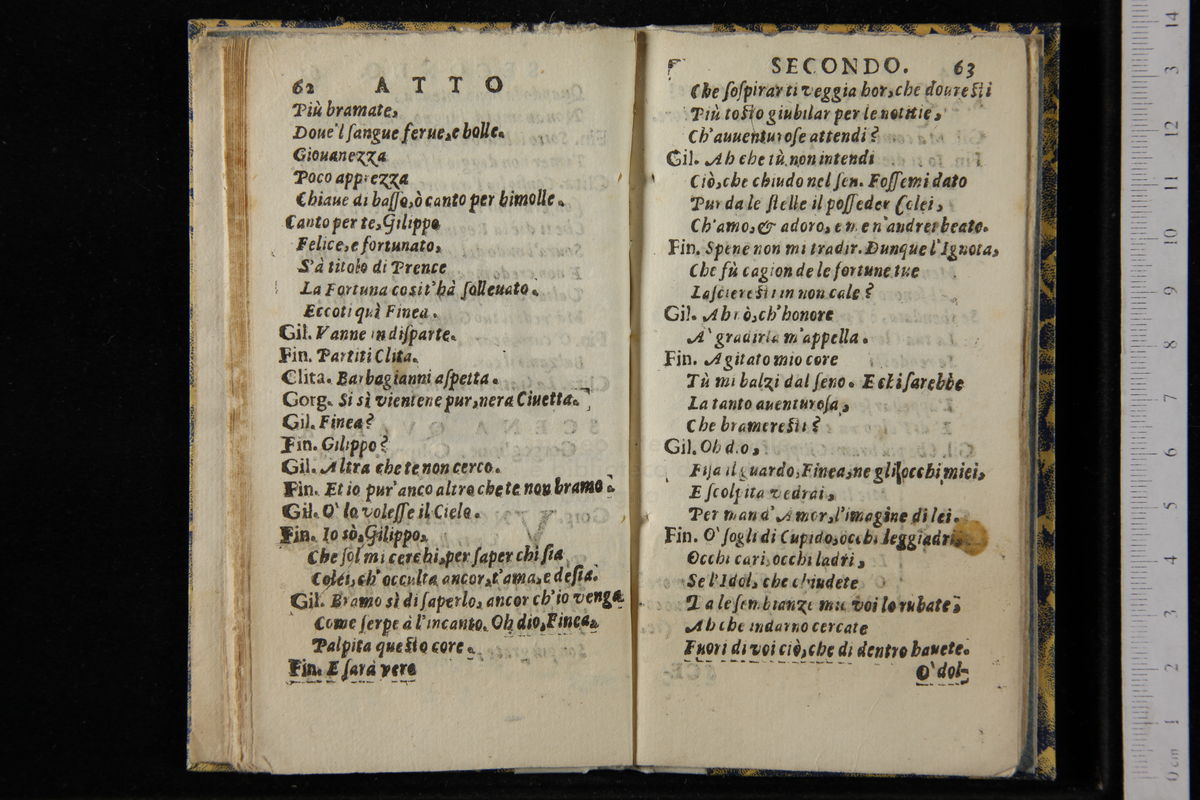 62 ATTO
Più bramate,
Doue'l ſangue ferue, e bolle.
Giouanezza
Poco apprezza
Chiaue di baſſo, ò canto per bimolle.
Canto per te, Gilippo
Felice, e fortunato,
S'à titolo di Prence
La Fortuna cosi t'hà ſolleuato.
Eccoti quì Finea.
Gil. Vanne in diſparte.
Fin. Partiti Clita.
Clita. Barbagianni aſpetta.
Gorg. Si sì vientene pur, nera Ciuetta.
Gil. Finea?
Fin. Gilippo?
Gil. Altra che te non cerco.
Fin. Et io pur'anco altro che te non bramo.
Gil. O' lo voleſſe il Cielo.
Fin. Io sò, Gilippo,
Che ſol mi cerchi, per ſaper chi ſia
Colei, ch'occulta ancor, t'ama, e deſia.
Gil. Bramo sì di ſaperlo, ancor ch'io venga
Come ſerpe à l'incanto. Oh dio, Finea,
Palpita queſto core.
Fin. E ſarà vero
SECONDO. 63
Che ſoſpirar ti veggia hor, che doureſti
Più toſto giubilar per le notitie,
Ch'auuenturoſe attendi?
Gil. Ah che tù non intendi
Ciò, che chiudo nel ſen. Foſſemi dato
Pur da le ſtelle il poſſeder Colei,
Ch'amo, & adoro, e me n'andrei beato.
Fin. Spene non mi tradir. Dunque l'Ignota,
Che fù cagion de le fortune tue
Laſciereſti in non cale?
Gil. Ah nò, ch'honore
A' gradirla m'appella.
Fin. Agitato mio core
Tù mi balzi dal ſeno. E chi ſarebbe
La tanto auenturoſa,
Che bramereſti?
Gil. Oh dio,
Fiſa il guardo, Finea, ne gli occhi miei,
E ſcolpita vedrai,
Per man d'Amor, l'imagine di lei.
Fin. O' ſogli di Cupido, occhi leggiadri,
Occhi cari, occhi ladri,
Se l'Idol, che chiudete
Da le ſembianze mie voi lo rubate,
Ah che indarno cercate
Fuori di voi ciò, che di dentro hauete.
O' dol-